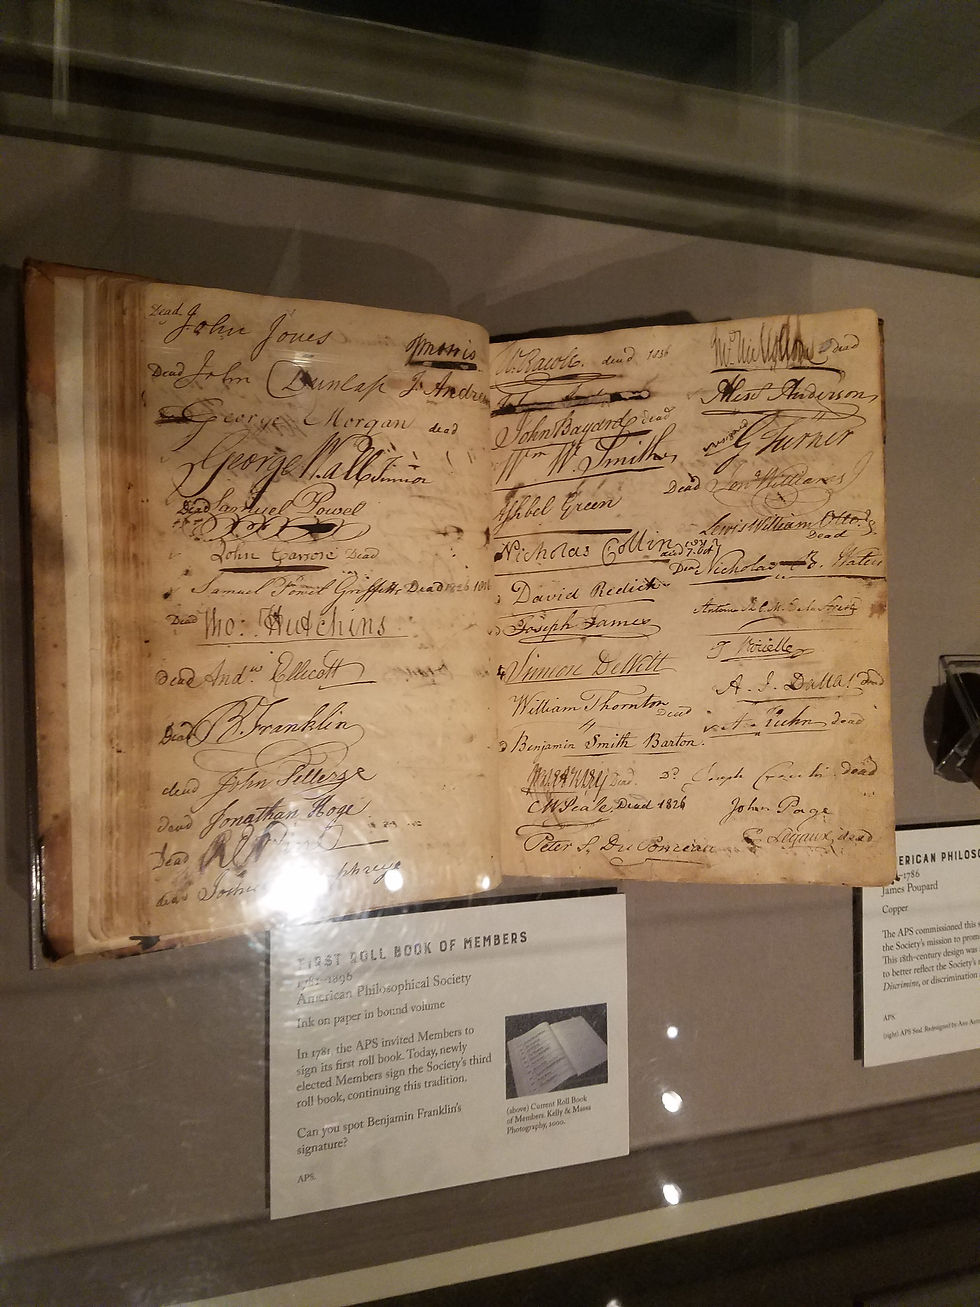 Dead John Jones
Dead John Dunlap J. Andre
George Morgan dead
George Wall Junior
Dead Samuel Powel
John Carson Dead
Samuel Powel Griffitts Dead 1826
Dead Tho: Hutchins
Dead Andw Ellicott
Dead B. Franklin
dead John
dead Jonathan Hoge
Dead
dead
W. Rawle dead 1836
John Bayard dead
Wm W. Smith
Ashbel Green
Nicholas Collin
David Redick
Joseph James
Simeon DeWitt
William Thornton Dead
Benjamin Smith Barton.
Dead
C W Peale, Dead 1826
Peter S. Du Ponceau
dead
Alexr Anderson
G Turner
Dead Jona Williams
Lewis William Otto
Dead
Dead Nicholas B. Waters
A. J. Dallas dead
A. Kuhn dead
Dr. Joseph dead
John Page
Legaux dead
FIRST ROLL BOOK OF MEMBERS
1781–1896
American Philosophical Society
Ink on paper in bound volume
In 1781, the APS invited Members to
sign its first roll book. Today, newly
elected Members sign the Society's third
roll book, continuing this tradition.
Can you spot Benjamin Franklin's
signature?
APS.
(above) Current Roll Book
of Members. Kelly & Massa
Photography, 2000.
ERICAN PHILOSO
–1786
James Poupard
Copper
The APS commissioned this s
the Society's mission to prom
This 18th-century design was
to better reflect the Society's
Discrimine, or discrimination
APS.
(right) APS Seal. Redesigned by